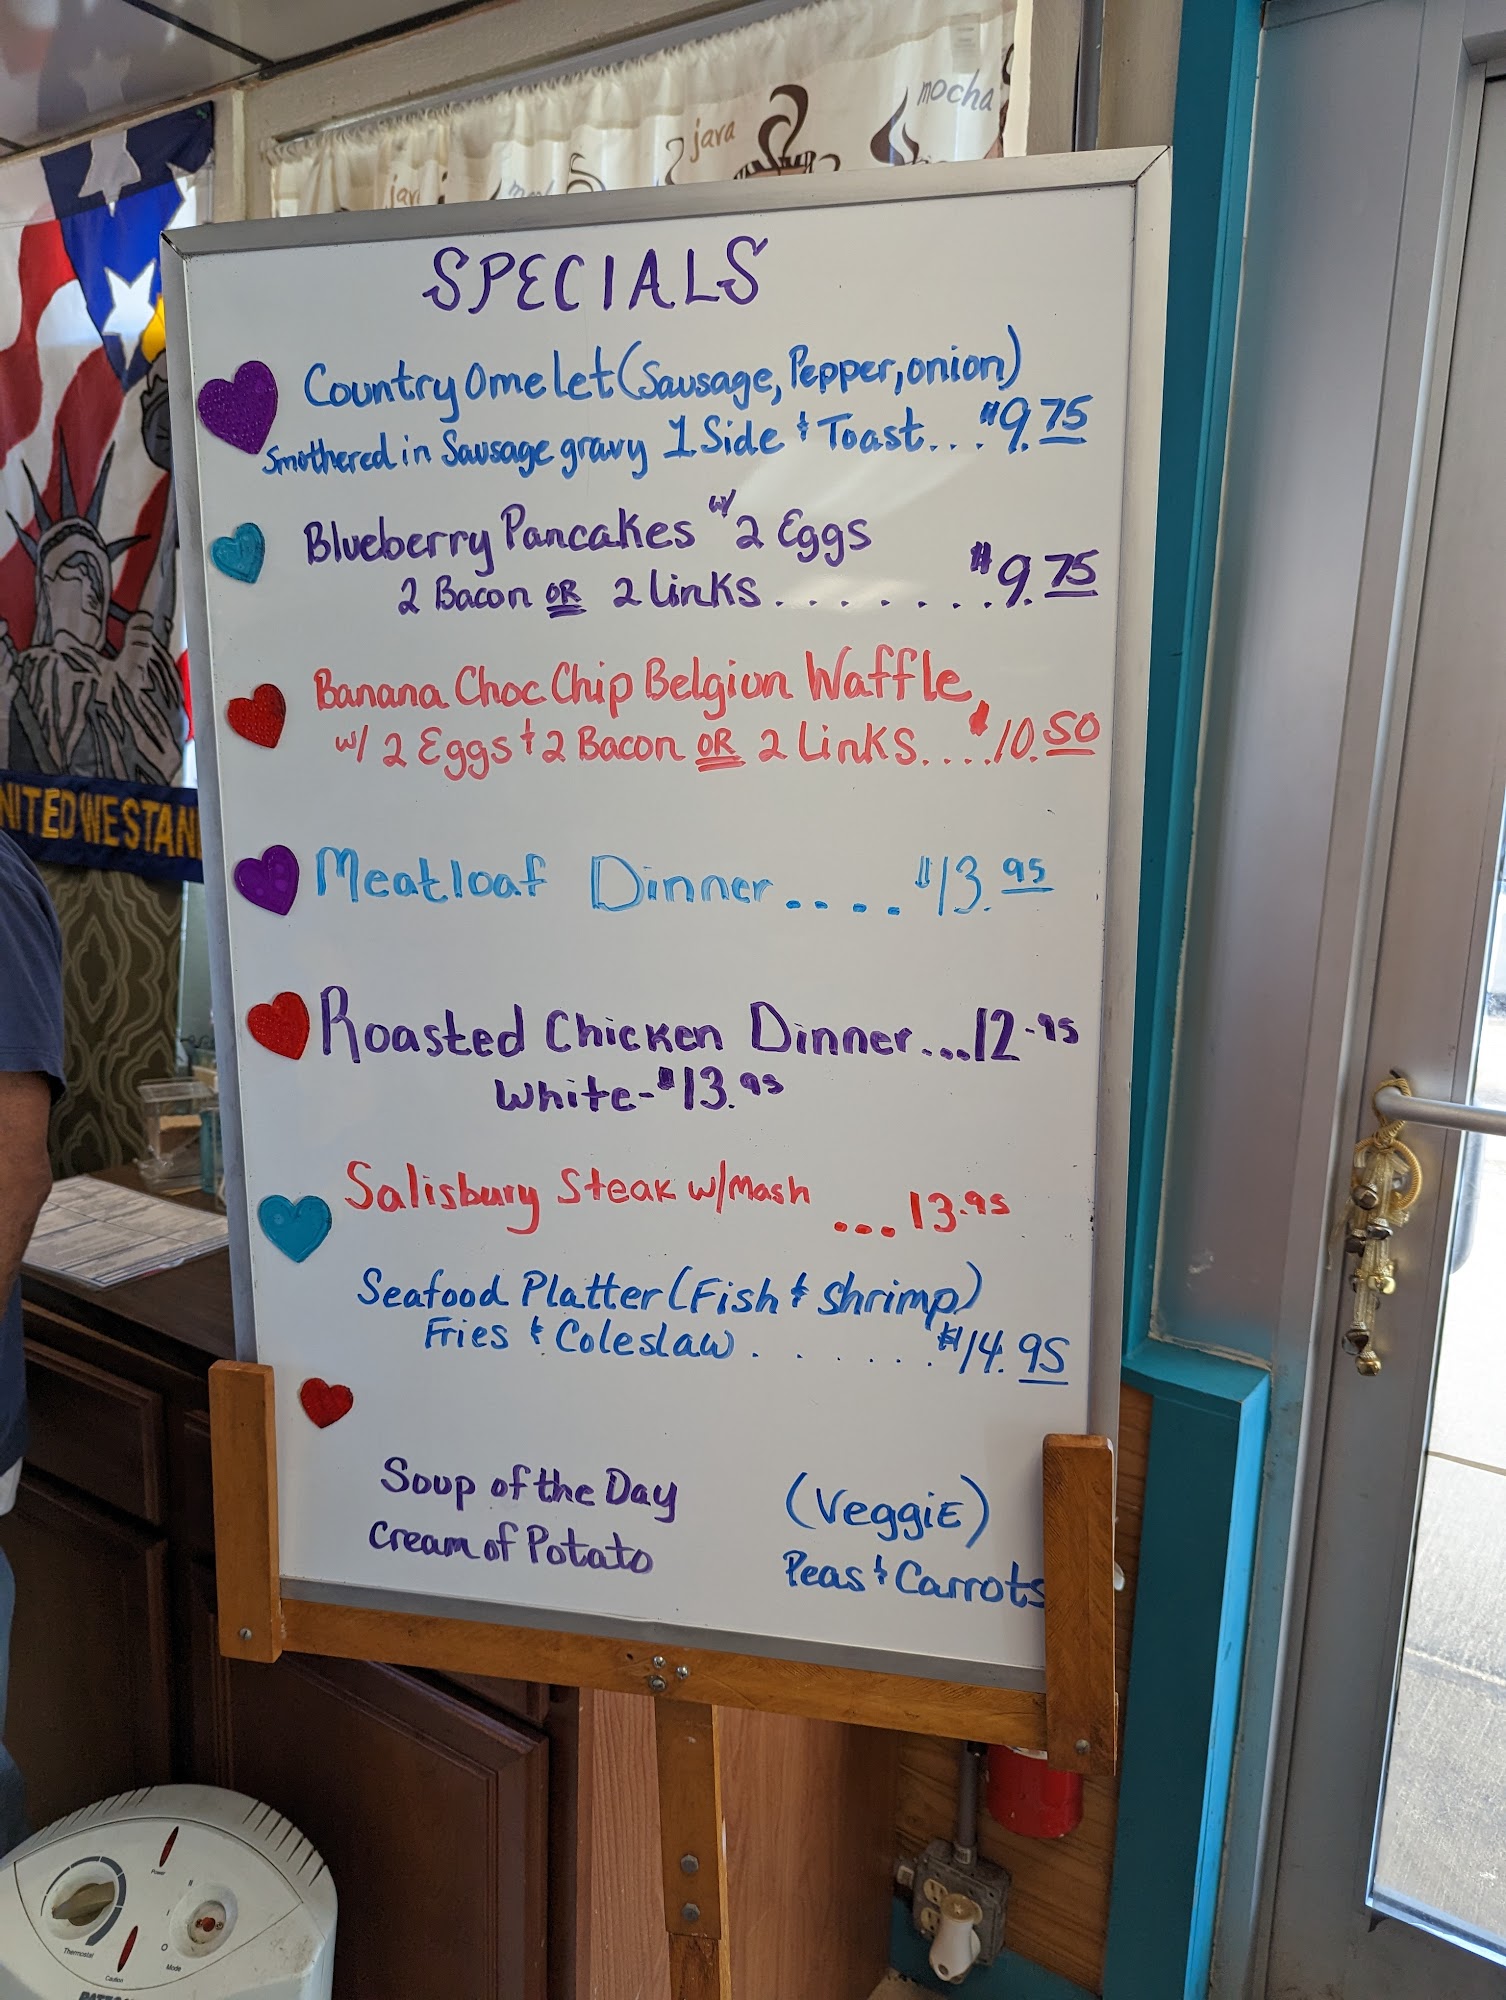 mocha
java
java
SPECIALS
Country Omelet (Sausage, Pepper, onion)
Smothered in Sausage gravy 1 Side & Toast... $9.75
Blueberry Pancakes w/ 2 Eggs
2 Bacon OR 2 Links........ $9.75
Banana Choc Chip Belgiun Waffle
w/ 2 Eggs & 2 Bacon OR 2 Links.... $10.50
NITED WE STAN
Meatloaf Dinner.... $13.95
Roasted Chicken Dinner...12.95
White-$13.95
Salisbury Steak w/Mash ...13.95
Seafood Platter (Fish & Shrimp)
Fries & Coleslaw....... $14.95
Soup of the Day
Cream of Potato
(VeggiE)
Peas & Carrots
Power
Thermostat
Caution
Mode